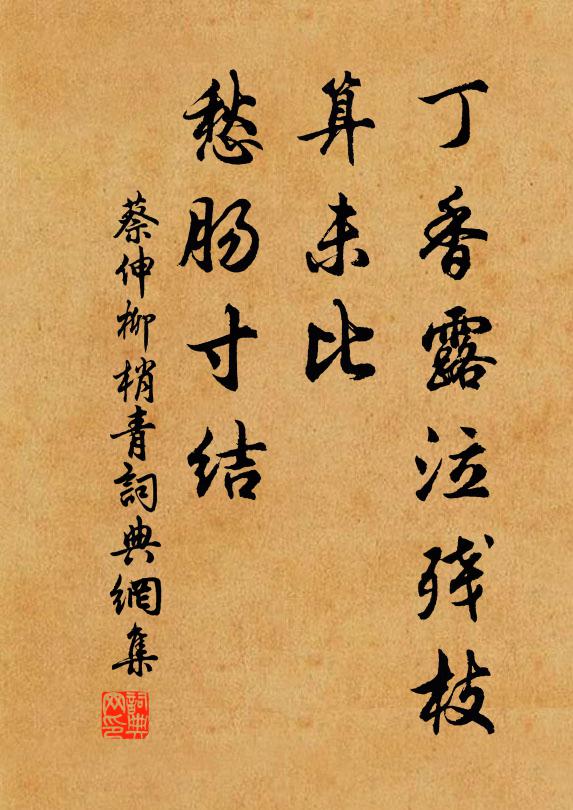 丁香露泣残枝
算未比
愁肠寸结
蔡伸柳梢青詞典網集
詞典网印